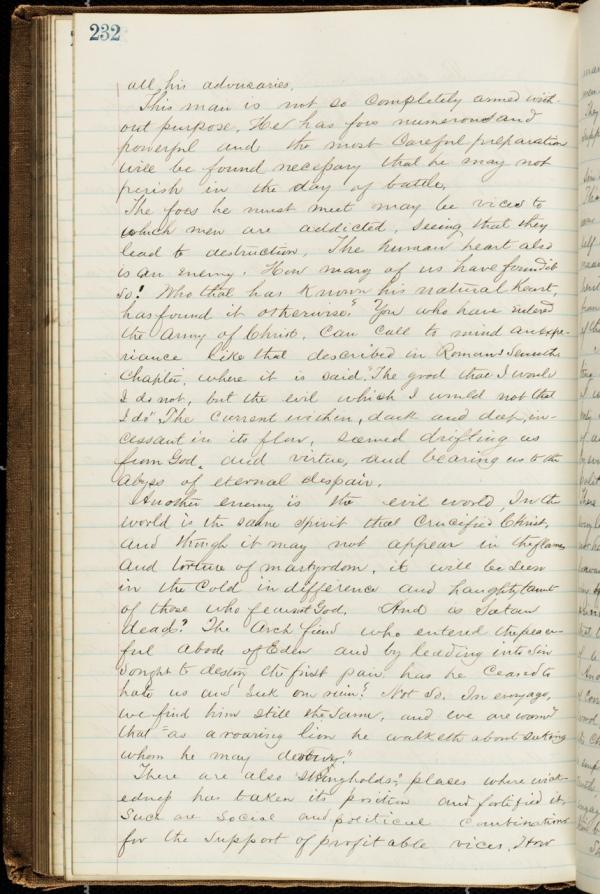 232
all his adversaries.
This man is not so completely armed with-
out purpose. He has foes numerous and
powerful and the most careful preparation
will be found necessary that he may not
perish in the day of battle.
The foes he must meet may be vices to
which men are addicted, seeing that they
lead to destruction. The human heart also
is an enemy. How many of us have found it
so! Who that has known his natural heart,
has found it otherwise? You who have entered
the army of Christ, can call to mind an expe-
riance like that described in Romans Seventh
Chapter, where it is said, "The good that I would
I do not, but the evil which I would not that
I do". The current within, dark and deep, in-
cessant in its flow, seemed drifting us
from God, and virtue, and bearing us to the
abyss of eternal despair.
Another enemy is the evil world, In the
world is the same spirit that crucified Christ,
and though it may not appear in the flames
and torture of martyrdom, it will be seen
in the cold indifference and haughty taunt
of those who fear not God. And is Satan
dead? The Arch fiend who entered the peace-
ful abode of Eden and by leading into sin
sought to destroy the first pair has he ceased to
hate us and seek our ruin? Not so. In every age,
we find him still the same, and we are warn'd
that "as a roaring lion he walketh about seeking
whom he may devour."
There are also "strongholds", places where wick-
edness has taken its position and fortified it.
Such are social and political combinations
for the support of profitable vices. How